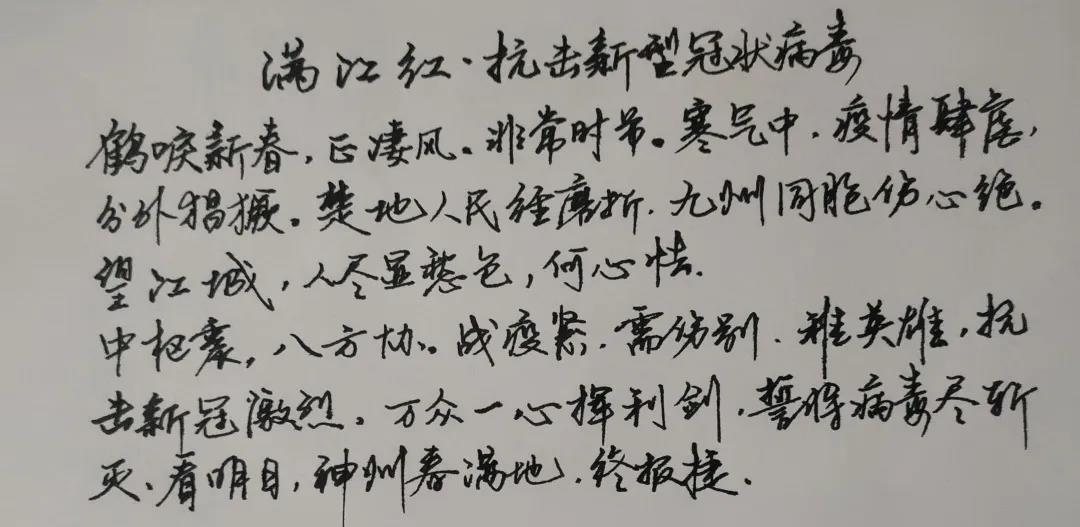 满江红·抗击新型冠状病毒
鹤唳新春，正凄风。非常时节。寒气中，疫情肆虐，
分外猖獗。楚地人民经磨折，九州同胞伤心绝。
望江城，人尽显愁色，何心怯.
中枢震，八方协。战疫紧，需伤别，难英雄，抗
击新冠激烈。万众一心挥利剑，誓将病毒尽斩
灭、看明日，神州春满地，终报捷.